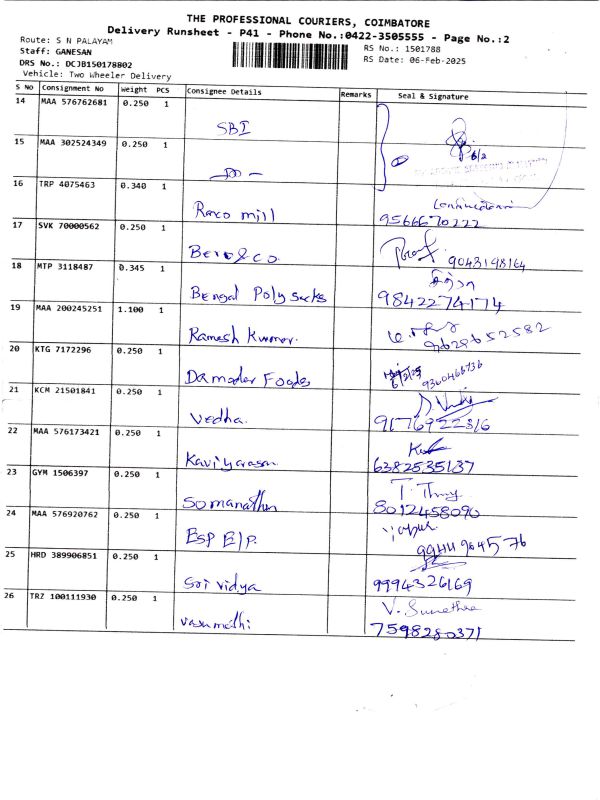 THE PROFESSIONAL COURIERS, COIMBATORE
Delivery Runsheet - P41 - Phone No.:0422-3505555 - Page No.:2
Route: S N PALAYAM
RS No.: 1501788
Staff: GANESAN
RS Date: 06-Feb-2025
DRS No.: DCJB150178802
Vehicle: Two Wheeler Delivery
S No Consignment No Weight PCS Consignee Details Remarks Seal & Signature
14 MAA 576762681 0.250 1
SBI
6/2
15 MAA 302524349 0.250 1
16 TRP 4075463 0.340 1
Ranco mill 9566670222
17 SVK 70000562 0.250 1
Bero & co. 9043198164
18 MTP 3118487 0.345 1
Bengal Poly Sacks 9842274174
19 MAA 200245251 1.100 1
Ramesh Kumar. 9629652582
20 KTG 7172296 0.250 1
Damoder Foods 9360466736
21 KCM 21501841 0.250 1
Vedha. 9176922316
22 MAA 576173421 0.250 1
Kaviyarasan 6382535137
23 GYM 1506397 0.250 1
Somanathan 8012458090
24 MAA 576920762 0.250 1
BSP E/P. 9944964576
25 HRD 389906851 0.250 1
Sri vidya 9994326169
26 TRZ 100111930 0.250 1
V. Sunethra
Vasumathi 7598280371